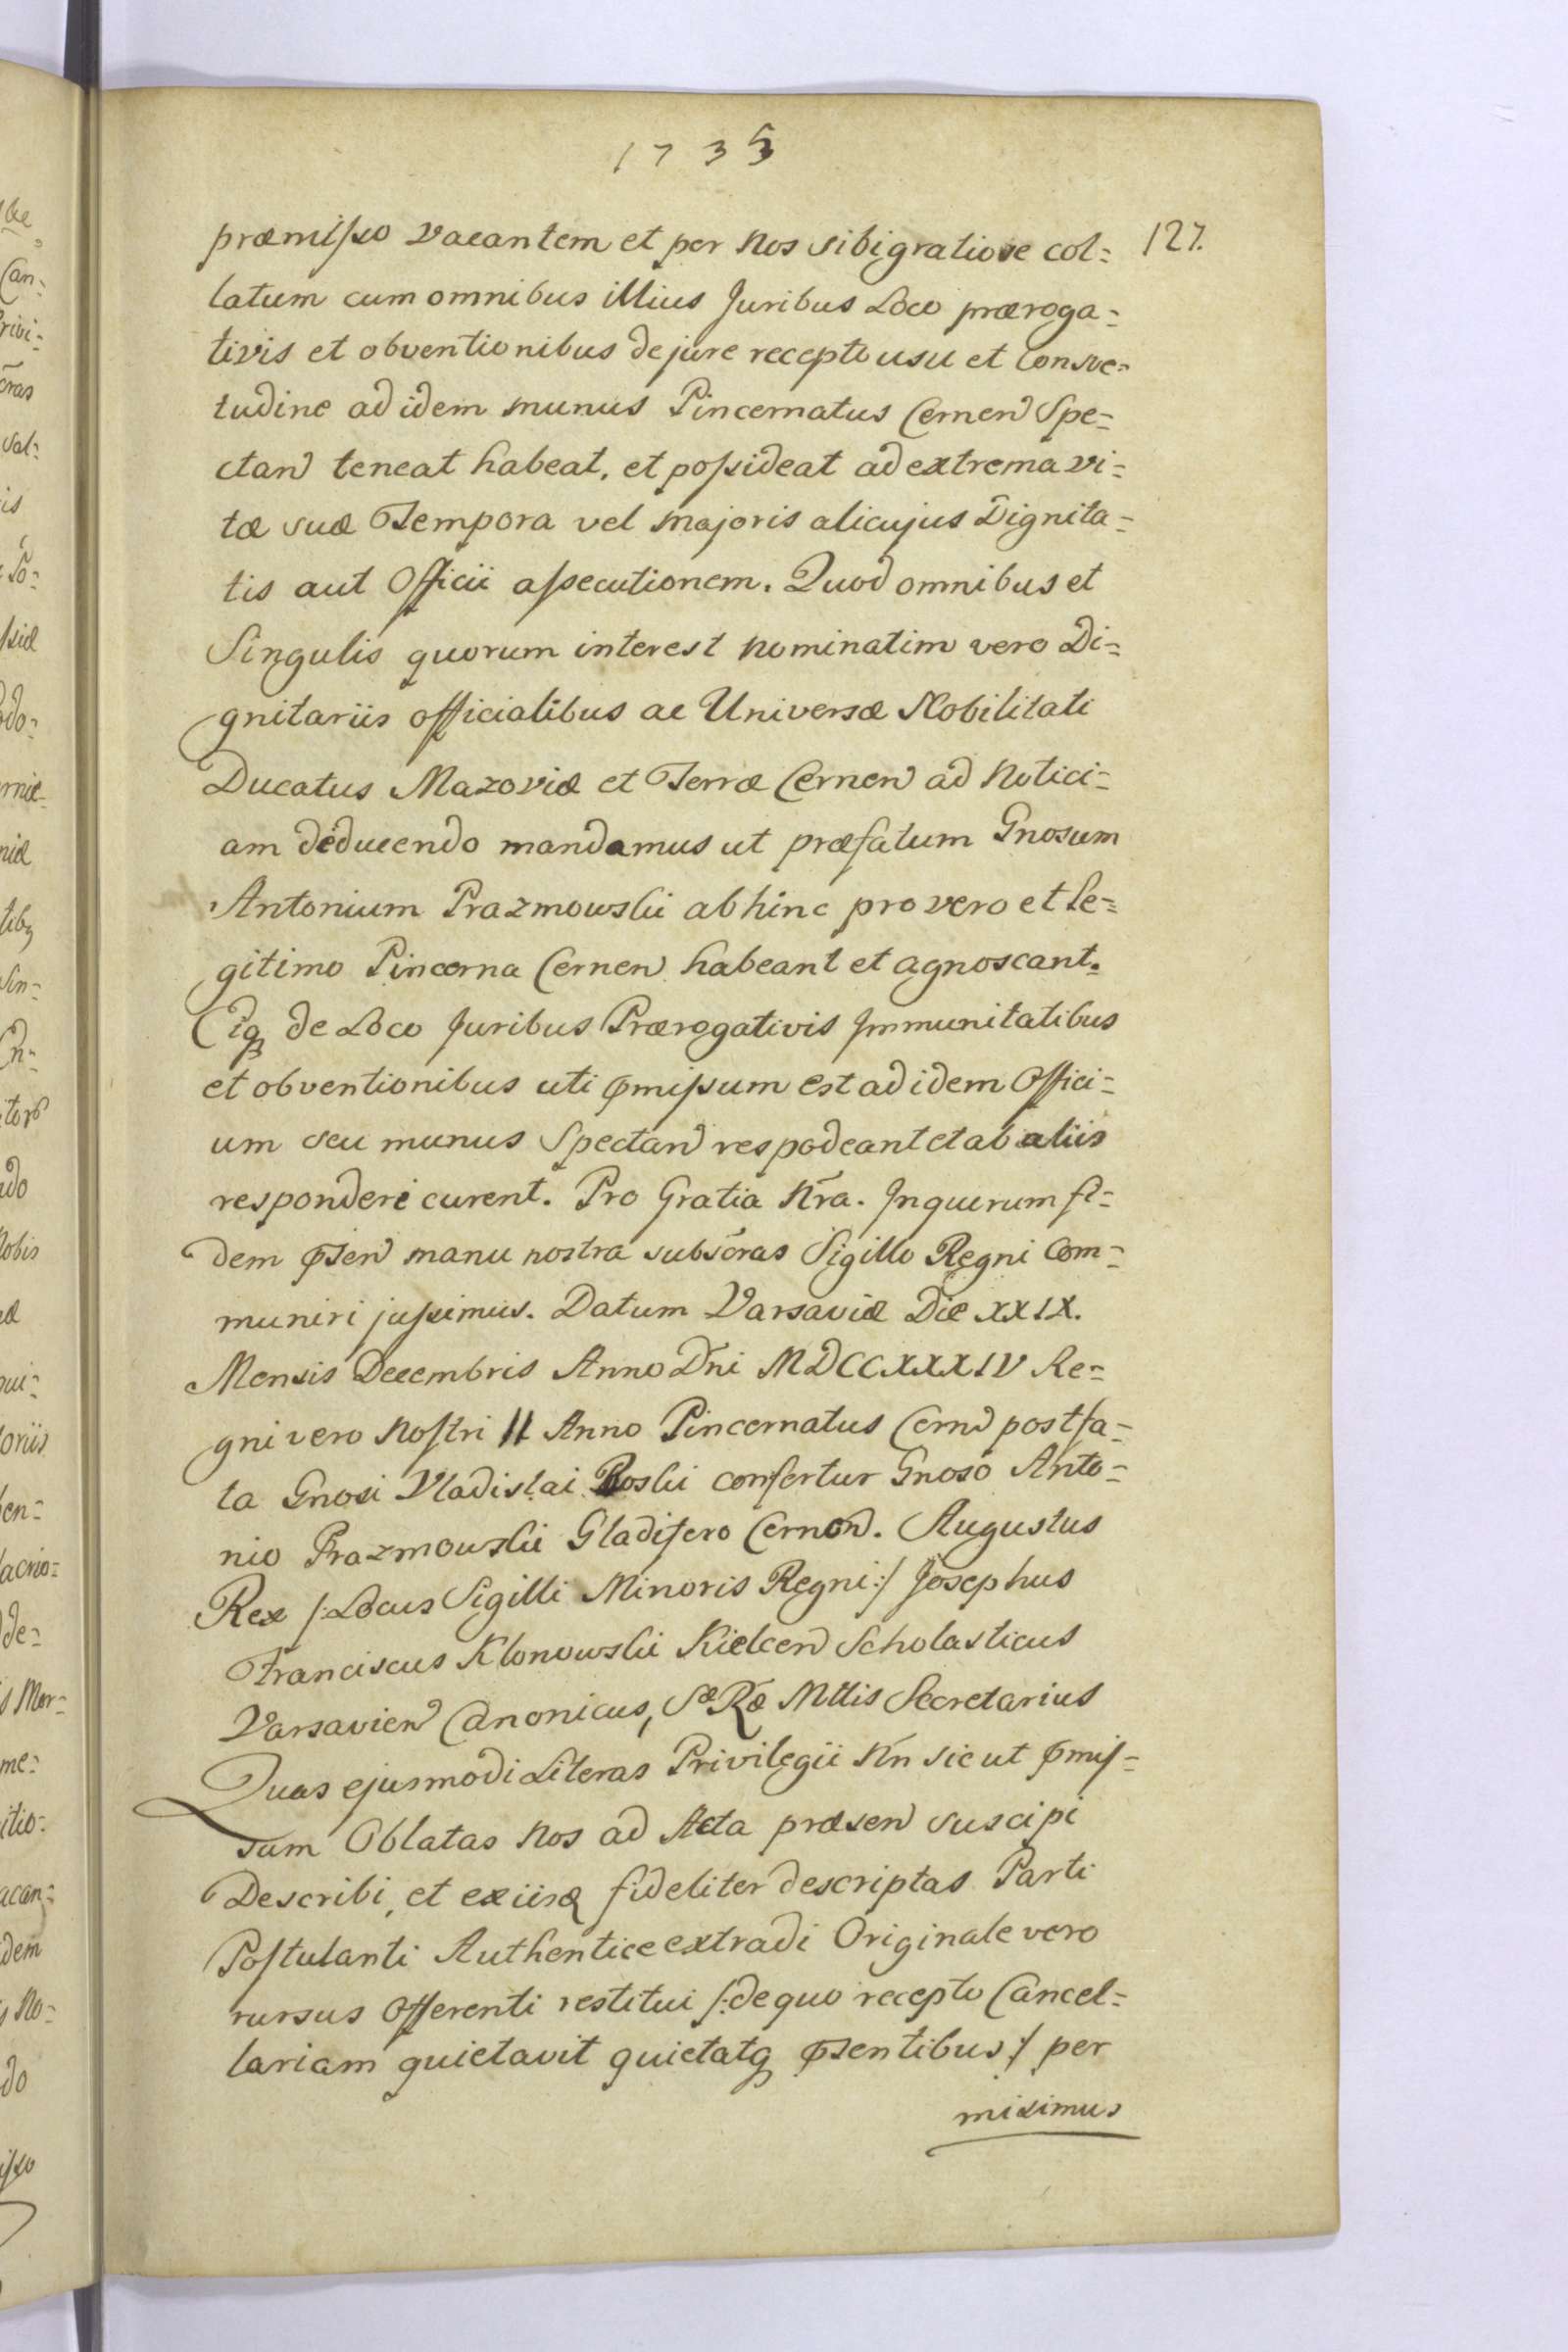 1735
127.
præmisso vacantem et per Nos sibi gratiose col=
latum cum omnibus illius Juribus Loco præroga=
tivis et obventionibus de jure recepto usu et Consve=
tudine ad idem munus Pincernatus Cernen Spe=
ctan teneat habeat, et possideat ad extrema vi=
tæ suæ Tempora vel majoris alicujus Dignita=
tis aut Officii assecutionem. Quod omnibus et
Singulis quorum interest nominatim vero Di=
gnitariis officialibus ac Universæ Nobilitati
Ducatus Mazoviæ et Terræ Cernen ad Notici=
am deducendo mandamus ut præfatum Gnosum
Antonium Prazmowski ab hinc pro vero et le=
gitimo Pincerna Cernen habeant et agnoscant.
Eiq de Loco Juribus Prærogativis Immunitatibus
et obventionibus uti pmissum est ad idem Offici=
um seu munus Spectan respodeant et ab aliis
responderi curent. Pro Gratia Nra. In quorum fi=
dem psen manu nostra subscras Sigillo Regni Com=
muniri jussimus. Datum Varsaviæ Die XXIX.
Mensis Decembris Anno Dni MDCCXXXIV Re=
gni vero Nostri II Anno Pincernatus Cern post fa=
ta Gnosi Vladislai Roski confertur Gnoso Anto=
nio Prazmowski Gladifero Cernen. Augustus
Rex /: Locus Sigilli Minoris Regni :/ Josephus
Franciscus Klonowski Kielcen Scholasticus
Varsavien Canonicus, Sæ Ræ Mttis Secretarius
Quas ejusmodi Literas Privilegii Nn sic ut pmis=
sum Oblatas Nos ad Acta præsen suscipi
Describi, et ex iisq fideliter descriptas Parti
Postulanti Authentice extradi Originale vero
rursus Offerenti restitui /: de quo recepto Cancel=
lariam quietavit quietatq psentibus :/ per
misimus